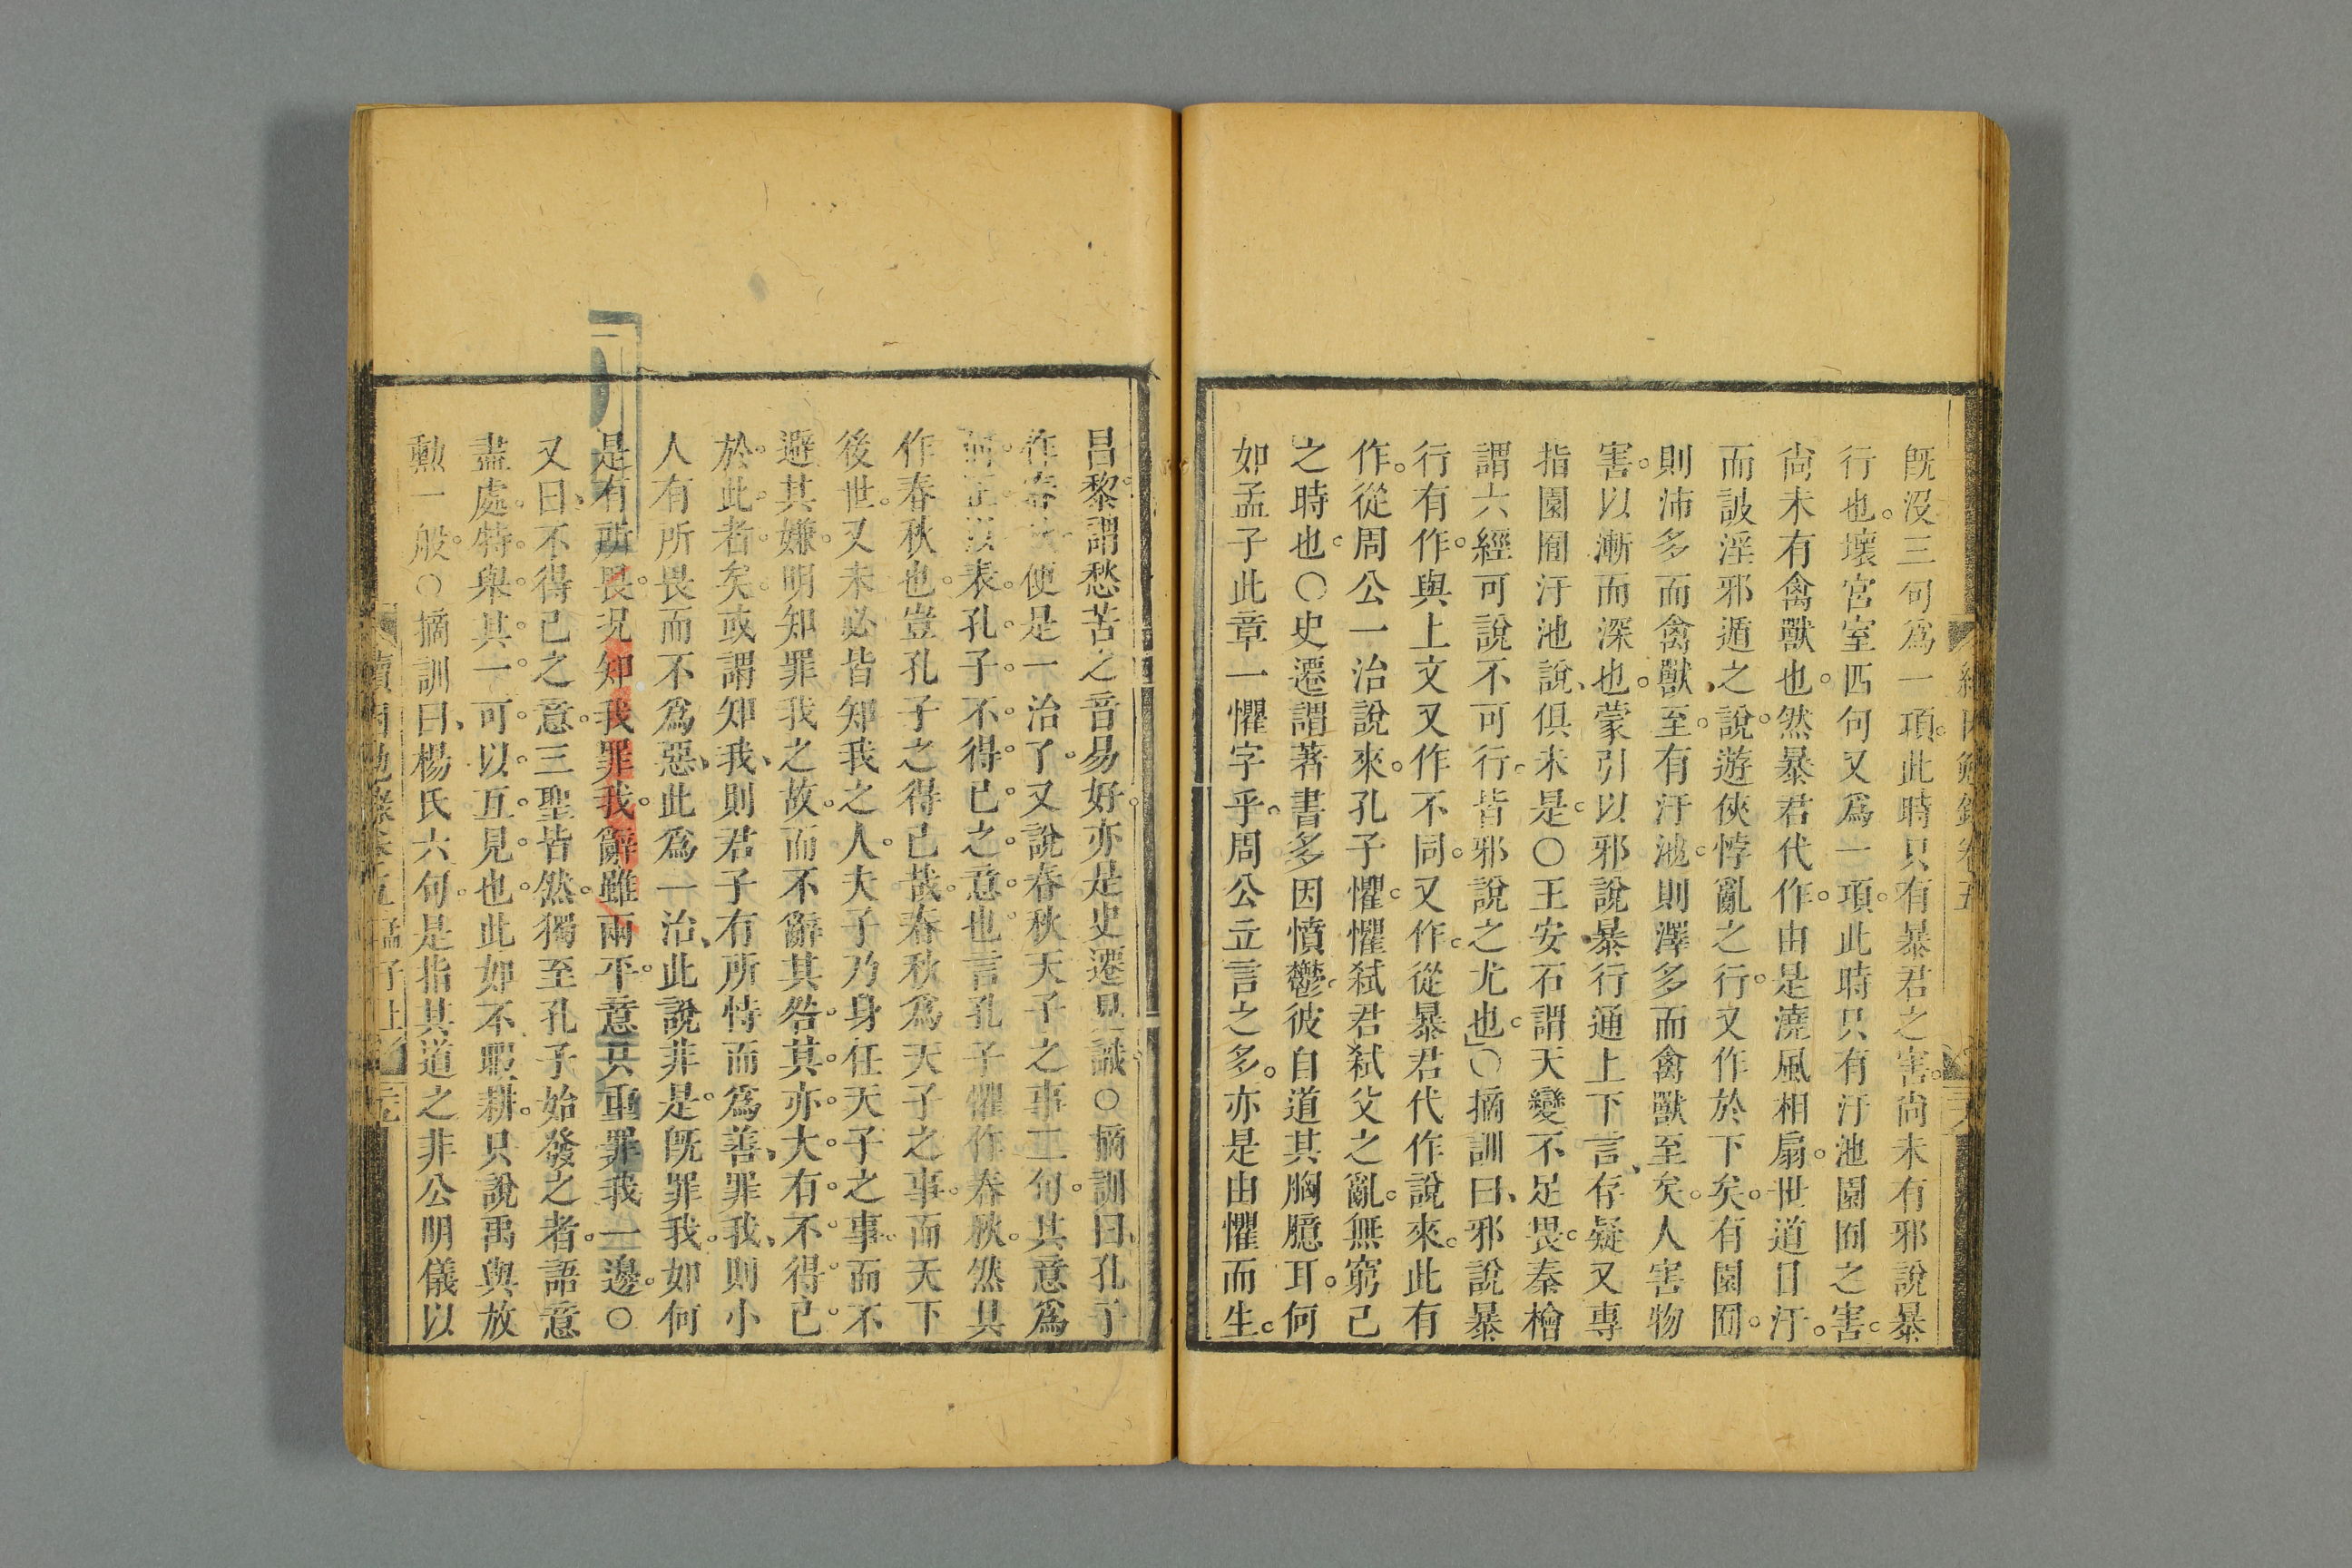 旣沒三句爲一項。此時只有暴君之害。尚未有邪說暴
行也。壞宮室四句又爲一項。此時只有汙池園囿之害。
尚未有禽獸也。然暴君代作。由是澆風相扇。世道日汙。
而詖淫邪遁之說。遊俠悖亂之行。又作於下矣。有園囿。
則沛多而禽獸至。有汙池。則澤多而禽獸至矣。人害物
害。以漸而深也。蒙引以邪說暴行通上下言、存疑又專
指園囿汙池說、俱未是。○王安石謂天變不足畏。秦檜
謂六經可說不可行。皆邪說之尤也。○摘訓曰、邪說暴
行有作。與上文又作不同。又作。從暴君代作說來。此有
作。從周公一治說來。孔子懼。懼弑君弑父之亂。無窮已
之時也。○史遷謂著書多因憤鬱。彼自道其胸臆耳。何
如孟子此章一懼字乎。周公立言之多。亦是由懼而生。
昌黎謂愁苦之音易好。亦是史遷見識○摘訓曰、孔子
作春秋便是一治了。又說春秋天子之事二句。其意爲
何。正以表孔子不得已之意也。言孔子懼作春秋。然其
作春秋也。豈孔子之得已哉。春秋爲天子之事。而天下
後世。又未必皆知我之人。夫子乃身任天子之事。而不
避其嫌。明知罪我之故。而不辭其咎。其亦大有不得已
於此者矣。或謂知我、則君子有所恃而爲善、罪我、則小
人有所畏而不爲惡、此爲一治、此說非是。旣罪我。如何
是有所畏。況知我罪我。辭雖兩平。意只重罪我一邊。○
又曰、不得已之意。三聖皆然。獨至孔子始發之者。語意
盡處。特舉其一。可以互見也。此如不暇耕。只說禹與放
勳一般。○摘訓曰、楊氏六句。是指其道之非。公明儀以